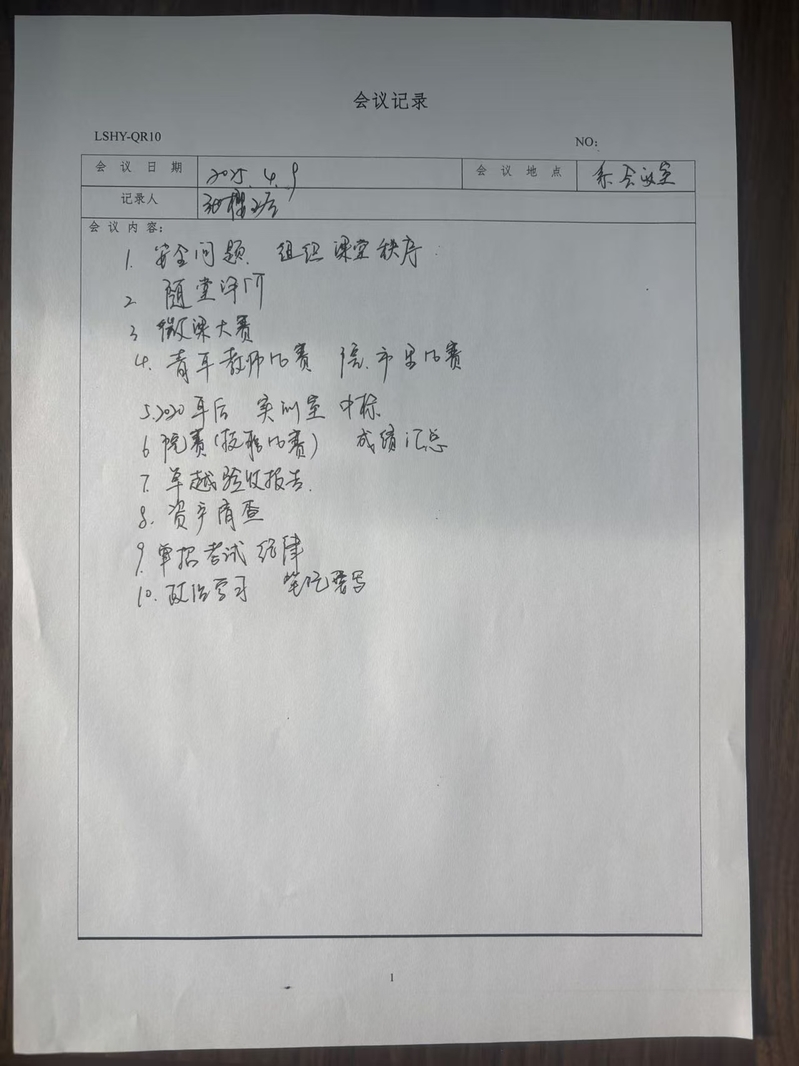 会议记录
LSHY-QR10 NO:
会议日期 2025.4.9 会议地点 系会议室
记录人
会议内容:
1. 安全问题. 组织课堂秩序
2. 随堂评价
3. 微课大赛
4. 青年教师比赛 院.市里比赛
5. 2020年后 实训室 中标
6. 院赛(技能比赛) 成绩汇总
7. 卓越验收报告.
8. 资产清查
9. 单招考试 纪律
10. 政治学习 笔记要写
1